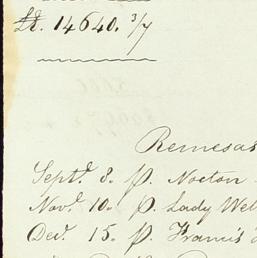 £. 14640. 3/7
Remesas
Septr. 8. p. Norton
Novr. 10. p. Lady Wel
Decr. 15. p. Francis